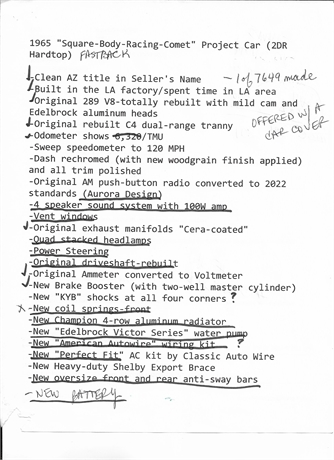 1965 "Square-Body-Racing-Comet" Project Car (2DR
Hardtop) FASTBACK
-Clean AZ title in Seller's Name - 1 of 7649 made
-Built in the LA factory/spent time in LA area
-Original 289 V8-totally rebuilt with mild cam and
Edelbrock aluminum heads
OFFERED W/ A
CAR COVER
-Original rebuilt C4 dual-range tranny
-Odometer shows 6,320/TMU
-Sweep speedometer to 120 MPH
-Dash rechromed (with new woodgrain finish applied)
and all trim polished
-Original AM push-button radio converted to 2022
standards (Aurora Design)
-4 speaker sound system with 100W amp
-Vent windows
-Original exhaust manifolds "Cera-coated"
-Quad stacked headlamps
-Power Steering
-Original driveshaft-rebuilt
-Original Ammeter converted to Voltmeter
-New Brake Booster (with two-well master cylinder)
-New "KYB" shocks at all four corners ?
x -New coil springs-front
-New Champion 4-row aluminum radiator
-New "Edelbrock Victor Series" water pump
-New "American Autowire" wiring kit ?
-New "Perfect Fit" AC kit by Classic Auto Wire
-New Heavy-duty Shelby Export Brace
-New oversize front and rear anti-sway bars
- NEW BATTERY